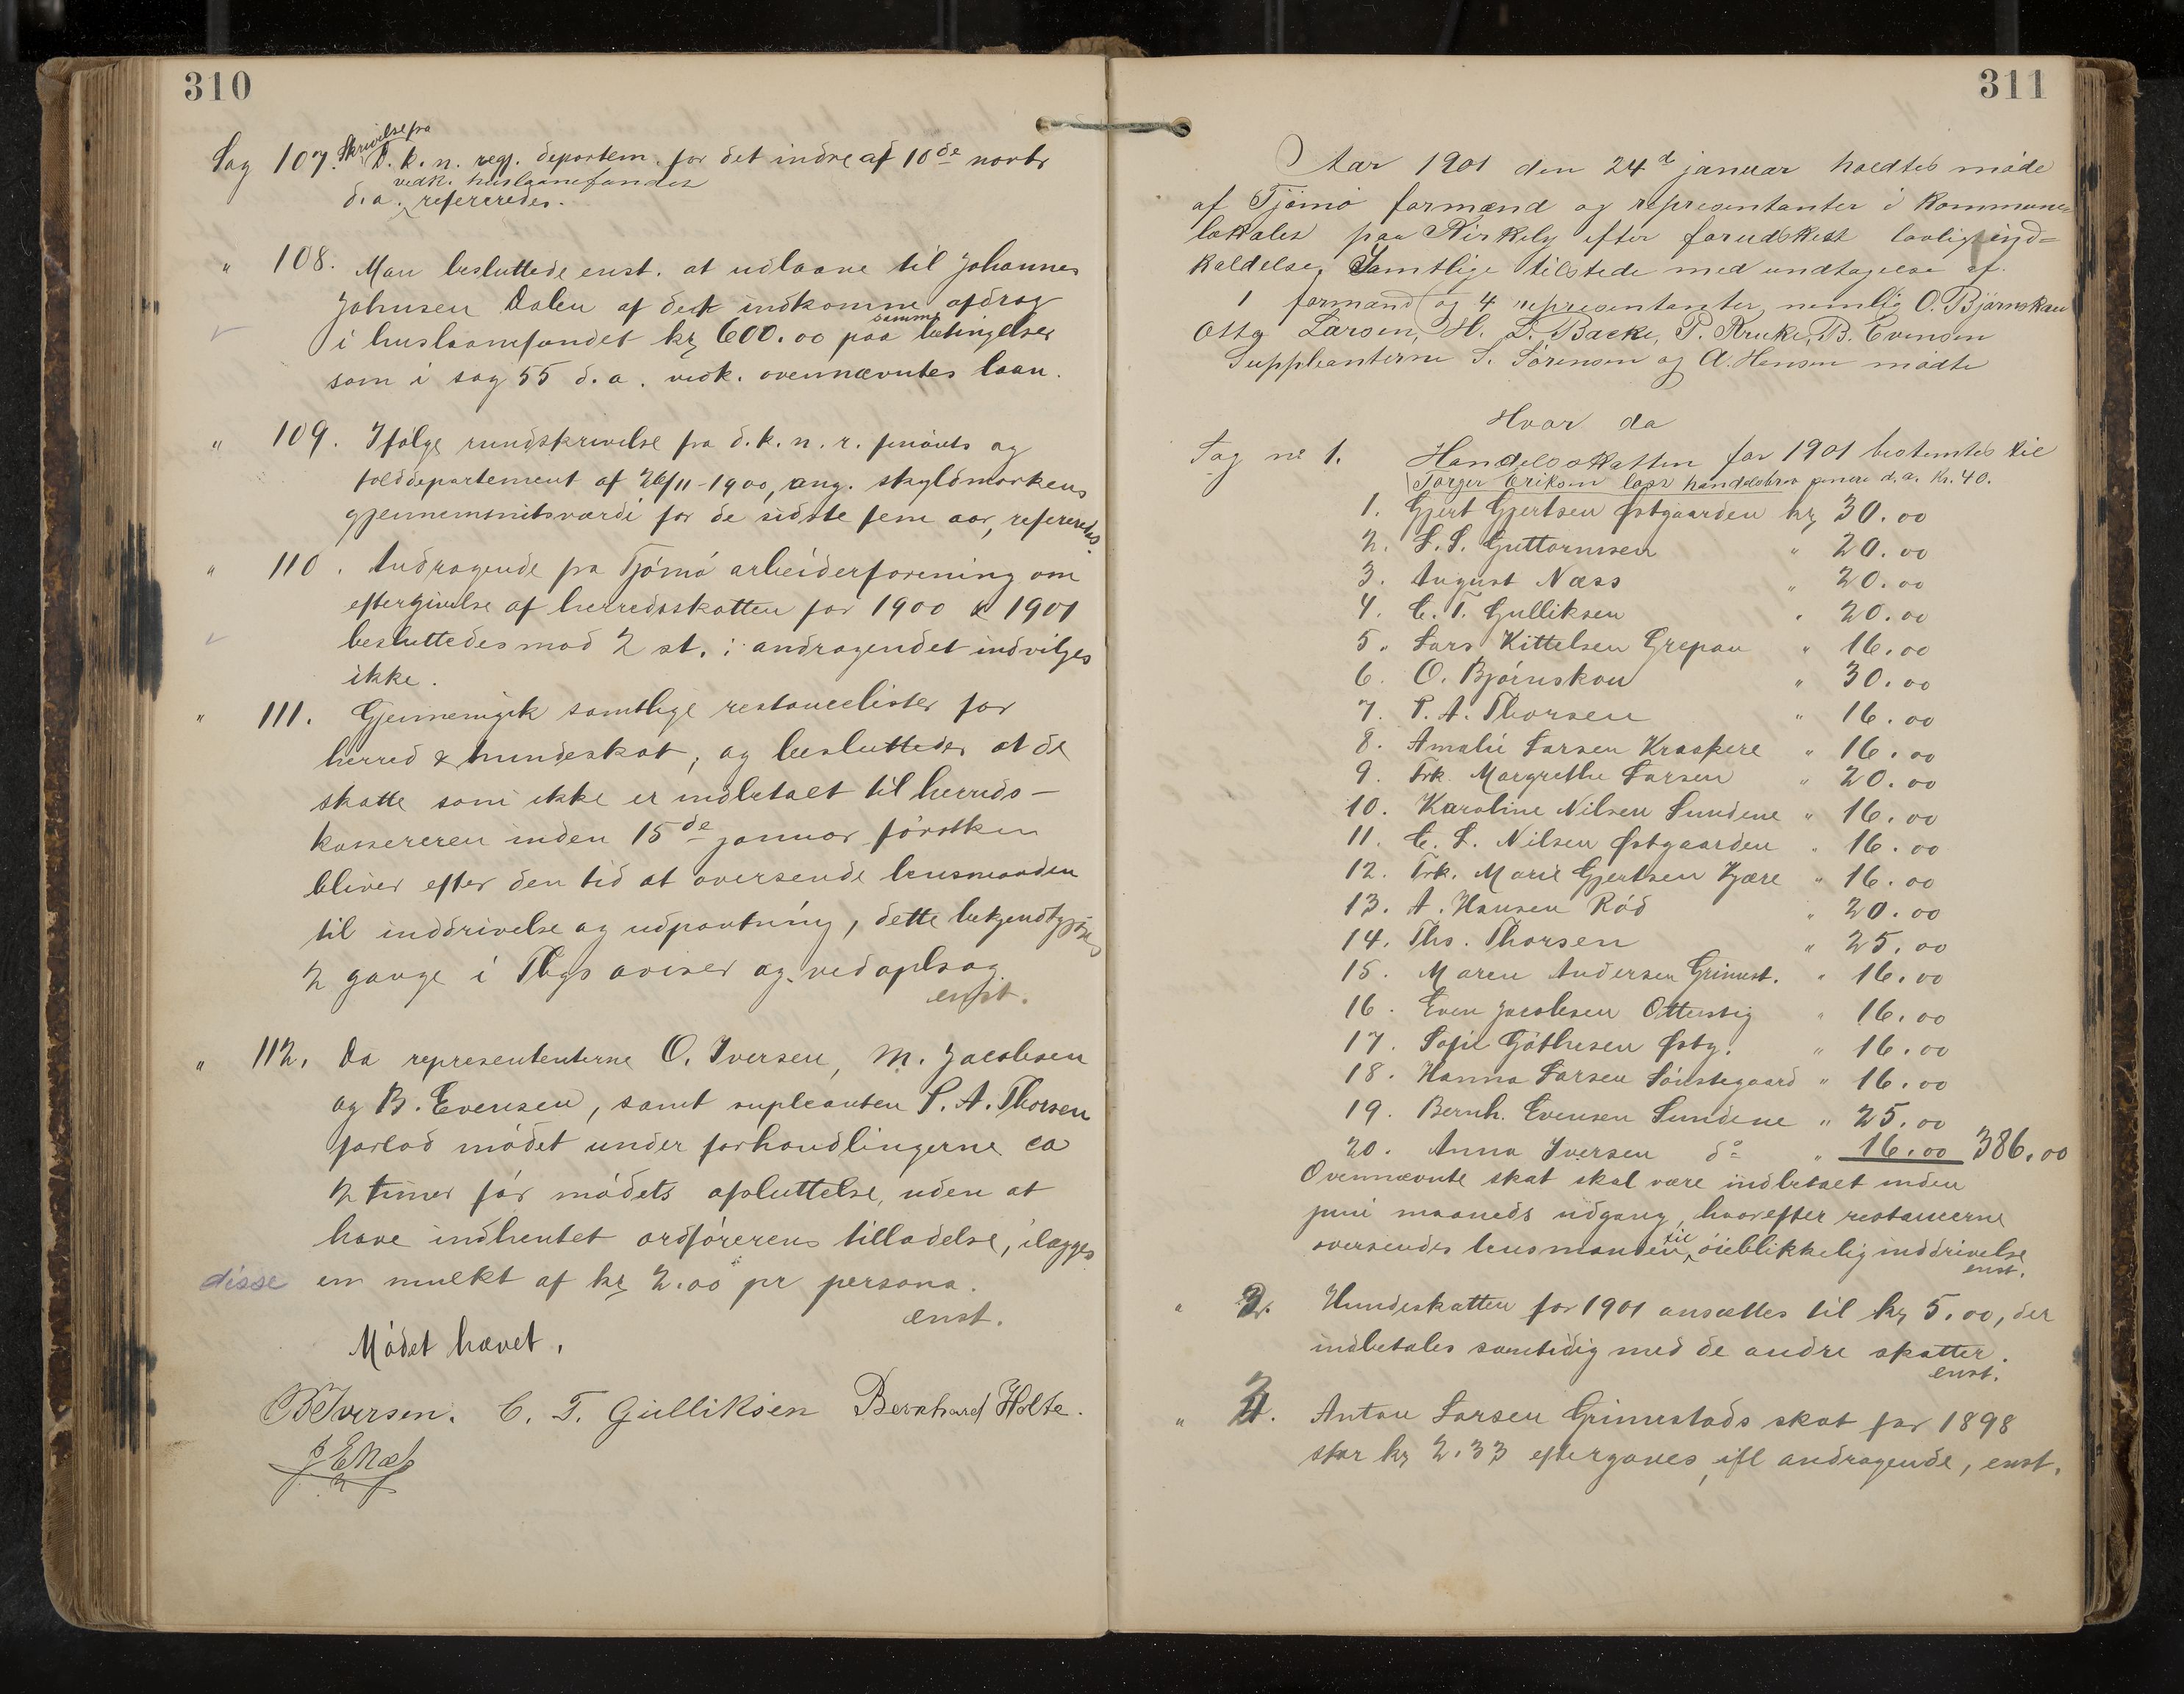 310
Sag 107. Skrivelse fra D. k. n. regj. departem. for det indre af 10de novbr
vedk. huslaanefondet
d.a. refereredes.
" 108. Man besluttede enst. at udlaane til Johannes
Johnsen Dalen af det indkomne afdrag
i huslaanefondet kr 600.00 paa samme betingelser
som i sag 55 d.a. vedk. ovennævntes laan.
" 109. Ifølge rundskrivelse fra d.k.n.r. finants og
tolddepartement af 26/11-1900, ang. skyldmarkens
gjennemsnitsværdi for de sidste fem aar, refereredes.
" 110. Andragende fra Tjømø arbeiderforening om
eftergivelse af herredsskatten for 1900 & 1901
besluttedes mod 2 st.: andragendet indvilges
ikke.
" 111. Gjennemgik samtlige restancelister for
herred & hundeskat, og besluttedes at de
skatte som ikke er indbetalt til herreds-
kassereren inden 15de januar førstken
bliver efter den tid at oversende lensmanden
til inddrivelse og udpantning, dette bekjendtgjøres
2 gange i Tbgs aviser og ved opslag.
enst.
" 112. Da represententerne O. Iversen, M. Jacobsen
og B. Evensen, samt supleanten P. A. Thorsen
forlod mødet under forhandlingerne ca
2 timer før mødets afsluttelse, uden at
have indhentet ordførerens tilladelse, ilægges
disse en mulkt af kr 2.00 pr persona.
enst.
Mødet hævet.
B Iversen. C. T. Gulliksen Bernhard Holte.
J E Næss
311
Aar 1901 den 24d januar holdtes møde
af Tjømø formænd og representanter i Kommune-
lokalet paa Kirkely efter forudskikket lovlig ind-
kaldelse. Samtlige tilstede med undtagelse af
1 formand og 4 representanter nemlig O. Bjørnskau
Otto Larsen, H. L. Backe, P. Kruke, B. Evensen
Suppleanterne S. Sørensen og A. Hansen mødte
Hvor da
Sag no 1. Handelsskatten for 1901 bestemtes til
Torger Eriksen løste handelsbrev senere d.a. Kr. 40.
1. Gjert Gjertsen Østgaarden kr 30.00
2. S. S. Guttormsen " 20.00
3. August Næss " 20.00
4. C. T. Gulliksen " 20.00
5. Lars Kittelsen Grepan " 16.00
6. O. Bjørnskau " 30.00
7. P. A. Thorsen " 16.00
8. Amalie Larsen Kraakere " 16.00
9. Frk. Margrethe Larsen " 20.00
10. Karoline Nilsen Sundene " 16.00
11. C. L. Nilsen Østgaarden " 16.00
12. Frk. Marie Gjertsen Kjære " 16.00
13. A. Hansen Rød " 20.00
14. Ths. Thorsen " 25.00
15. Maren Andersen Grimest. " 16.00
16. Even Jacobsen Otterstig " 16.00
17. Sofie Gøthesen Østg. " 16.00
18. Hanna Larsen Sønstegaard " 16.00
19. Bernh. Evensen Sundene " 25.00
20. Anna Iversen do " 16.00 386.00
Ovennævnte skat skal være indbetalt inden
juni maaneds udgang, hvorefter restancerne
oversendes lensmanden til øieblikkelig inddrivelse
enst.
" 2. Hundeskatten for 1901 ansættes til kr 5.00, der
indbetales samtidig med de andre skatter.
enst.
" 3. Anton Larsen Grimestads skat for 1898
stor kr 2.33 eftergaves ifl andragende, enst.